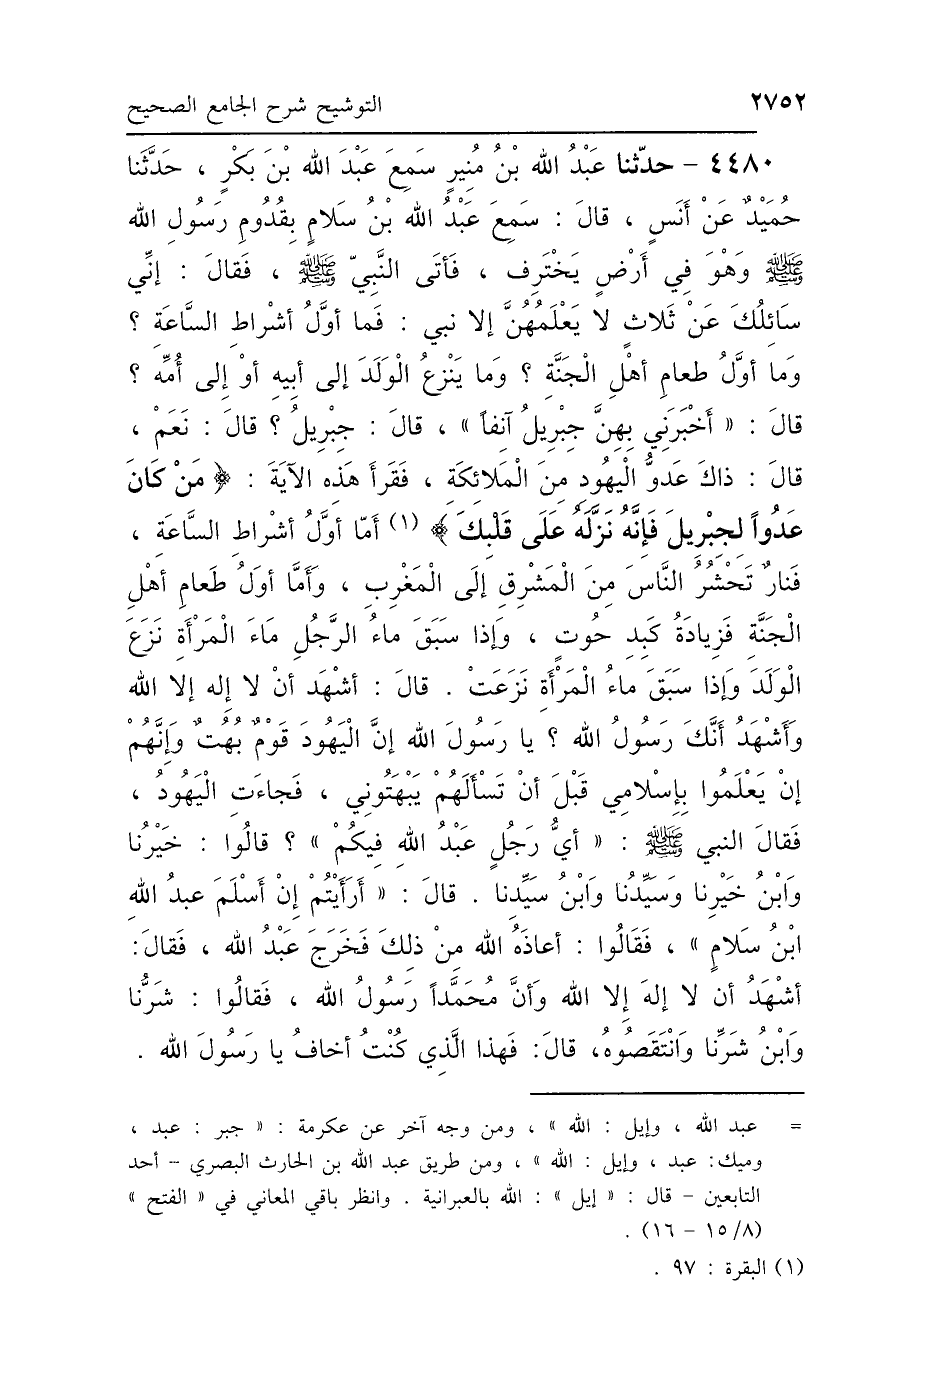 ٢٧٥٢ التوشيح شرح الجامع الصحيح
٤٤٨٠ - حدّثنا عَبْدُ الله بْنُ مُنِيرٍ سَمِعَ عَبْدَ الله بْنَ بَكْرٍ ، حَدَّثَنا
حُمَيْدٌ عَنْ أَنَسٍ ، قالَ : سَمِعَ عَبْدُ الله بْنُ سَلامٍ بِقُدُومِ رَسُولِ الله
ﷺ وَهْوَ فِي أَرْضٍ يَخْتَرِف ، فَأتَى النَّبِيّ ﷺ ، فَقالَ : إنِّي
سَائِلُكَ عَنْ ثَلاثٍ لا يَعْلَمُهُنَّ إلا نبي : فَما أوَّلُ أشْراطِ السَّاعَةِ ؟
وَما أولُ طعامِ أهْلِ الْجَنَّةِ ؟ وَما يَنْزِعُ الْوَلَدَ إلى أبيهِ أوْ إلى أُمِّه ؟
قالَ : « أَخْبَرَني بِهِنَّ جِبْرِيلُ آنفاً » ، قالَ : جِبْرِيلُ ؟ قالَ : نَعَمْ ،
قالَ : ذاكَ عَدوُّ الْيَهُودِ مِنَ الْمَلائِكَةِ ، فَقَرأَ هَذه الآيَةَ : ﴿ مَنْ كَانَ
عَدُواً لجِبْرِيلَ فَإنَّهُ نَزَّلَهُ عَلَى قَلْبكَ ﴾ (١) أمّا أوَّلُ أشْراط السَّاعَة ،
فَنارٌ تَحْشُرُ النَّاسَ مِنَ الْمَشْرِقِ إلَى الْمَغْرِب ، وَأَمَّا أولُ طَعامِ أهْلِ
الْجَنَّةِ فَزِيادَةُ كَبِدِ حُوتٍ ، وَإذا سَبَقَ ماءُ الرَّجُلِ مَاءَ الْمَرْأَةِ نَزَعَ
الْوَلَدَ وَإذا سَبَقَ ماءُ الْمَرْأَةِ نَزَعَتْ . قالَ : أشْهَد أنْ لا إله إلا الله
وَأشْهَدُ أنَّكَ رَسُولُ الله ؟ يا رَسُولَ الله إنَّ الْيَهُودَ قَوْمٌ بُهُتٌ وَإنَّهُمْ
إنْ يَعْلَمُوا بِإسْلامِي قَبْلَ أنْ تَسْأَلَهُمْ يَبْهَتُونِي ، فَجاءَت الْيَهُودُ ،
فَقالَ النبي ﷺ : « أيُّ رَجُلٍ عَبْدُ اللهِ فِيكُمْ » ؟ قالُوا : خَيْرُنا
وَابْنُ خَيْرِنا وَسَيِّدُنا وَابْنُ سَيِّدِنا . قالَ : « أَرَأَيْتُمْ إنْ أسْلَمَ عبدُ الله
ابْنُ سَلامٍ » ، فَقَالُوا : أعاذَهُ الله مِنْ ذلِكَ فَخَرَجَ عَبْدُ الله ، فَقالَ:
أشْهَدُ أن لا إلهَ إلا الله وَأنَّ مُحَمَّداً رَسُولُ الله ، فَقالُوا : شَرُّنا
وَابْنُ شَرِّنا وَانْتَقَصُوهُ، قالَ: فَهذا الَّذِي كُنْتُ أخافُ يا رَسُولَ الله .
= عبد الله ، وإيل : الله » ، ومن وجه آخر عن عكرمة : « جبر : عبد ،
وميك: عبد ، وإيل : الله » ، ومن طريق عبد الله بن الحارث البصري - أحد
التابعين - قال : « إيل » : الله بالعبرانية . وانظر باقي المعاني في « الفتح »
(٨/ ١٥ - ١٦) .
(١) البقرة : ٩٧ .